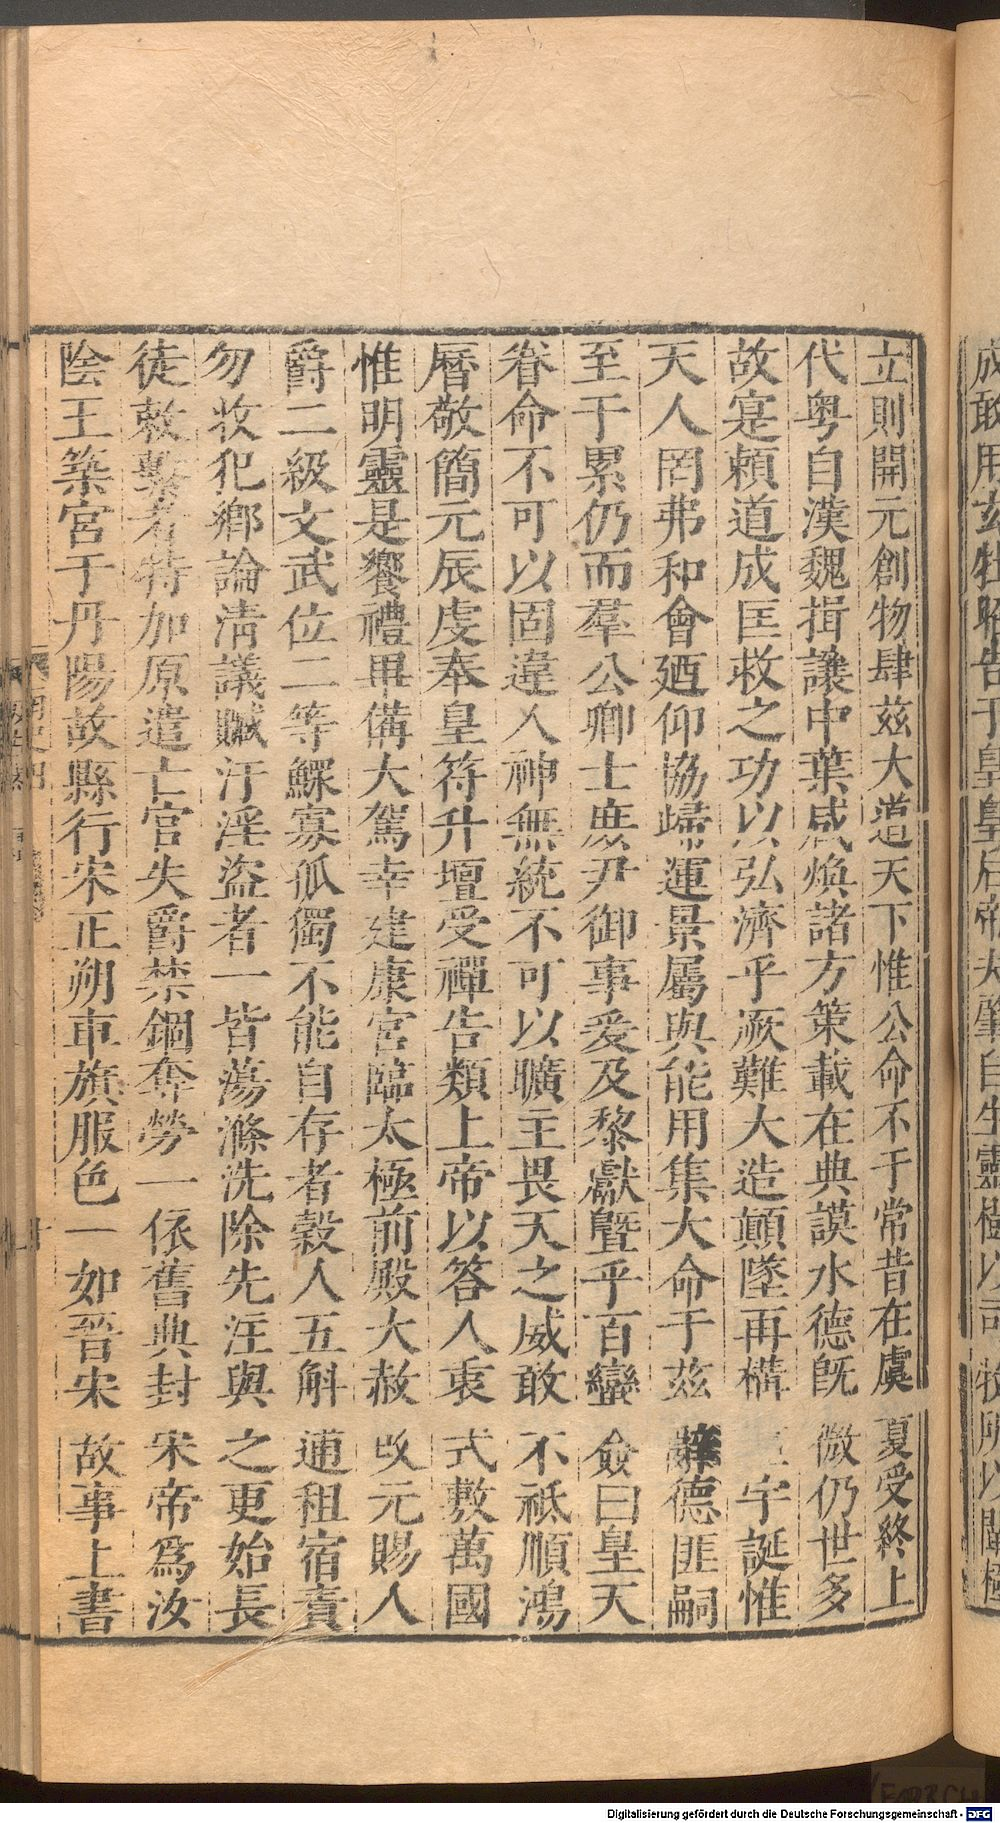 立則開元創物肆茲大道天下惟公命不于常昔在虞夏受終上
代粤自漢魏揖讓中葉咸煥諸方策載在典謨水德旣微仍世多
故寔賴道成匡救之功以弘濟乎厥難大造顛墜再構宇誕惟
天人罔弗和會廼仰協歸運景屬與能用集大命于茲辭德匪嗣
至于累仍而羣公卿士庶尹御事爰及黎獻曁乎百蠻僉曰皇天
眷命不可以固違人神無統不可以曠主畏天之威敢不祗順鴻
曆敬簡元辰虔奉皇符升壇受禪告類上帝以答人衷式敷萬國
惟明靈是饗禮畢備大駕幸建康宮臨太極前殿大赦改元賜人
爵二級文武位二等鰥寡孤獨不能自存者穀人五斛逋租宿責
勿收犯鄉論淸議贓汙淫盜者一皆蕩滌洗除先注與之更始長
徒敕繫者特加原遣亡官失爵禁錮奪勞一依舊典封宋帝爲汝
陰王築宮于丹陽故縣行宋正朔車旗服色一如晉宋故事上書
成敢用玄牡昭告于皇皇后帝夫肇自生靈樹以司牧所以闡極
Digitalisierung gefördert durch die Deutsche Forschungsgemeinschaft - DFG